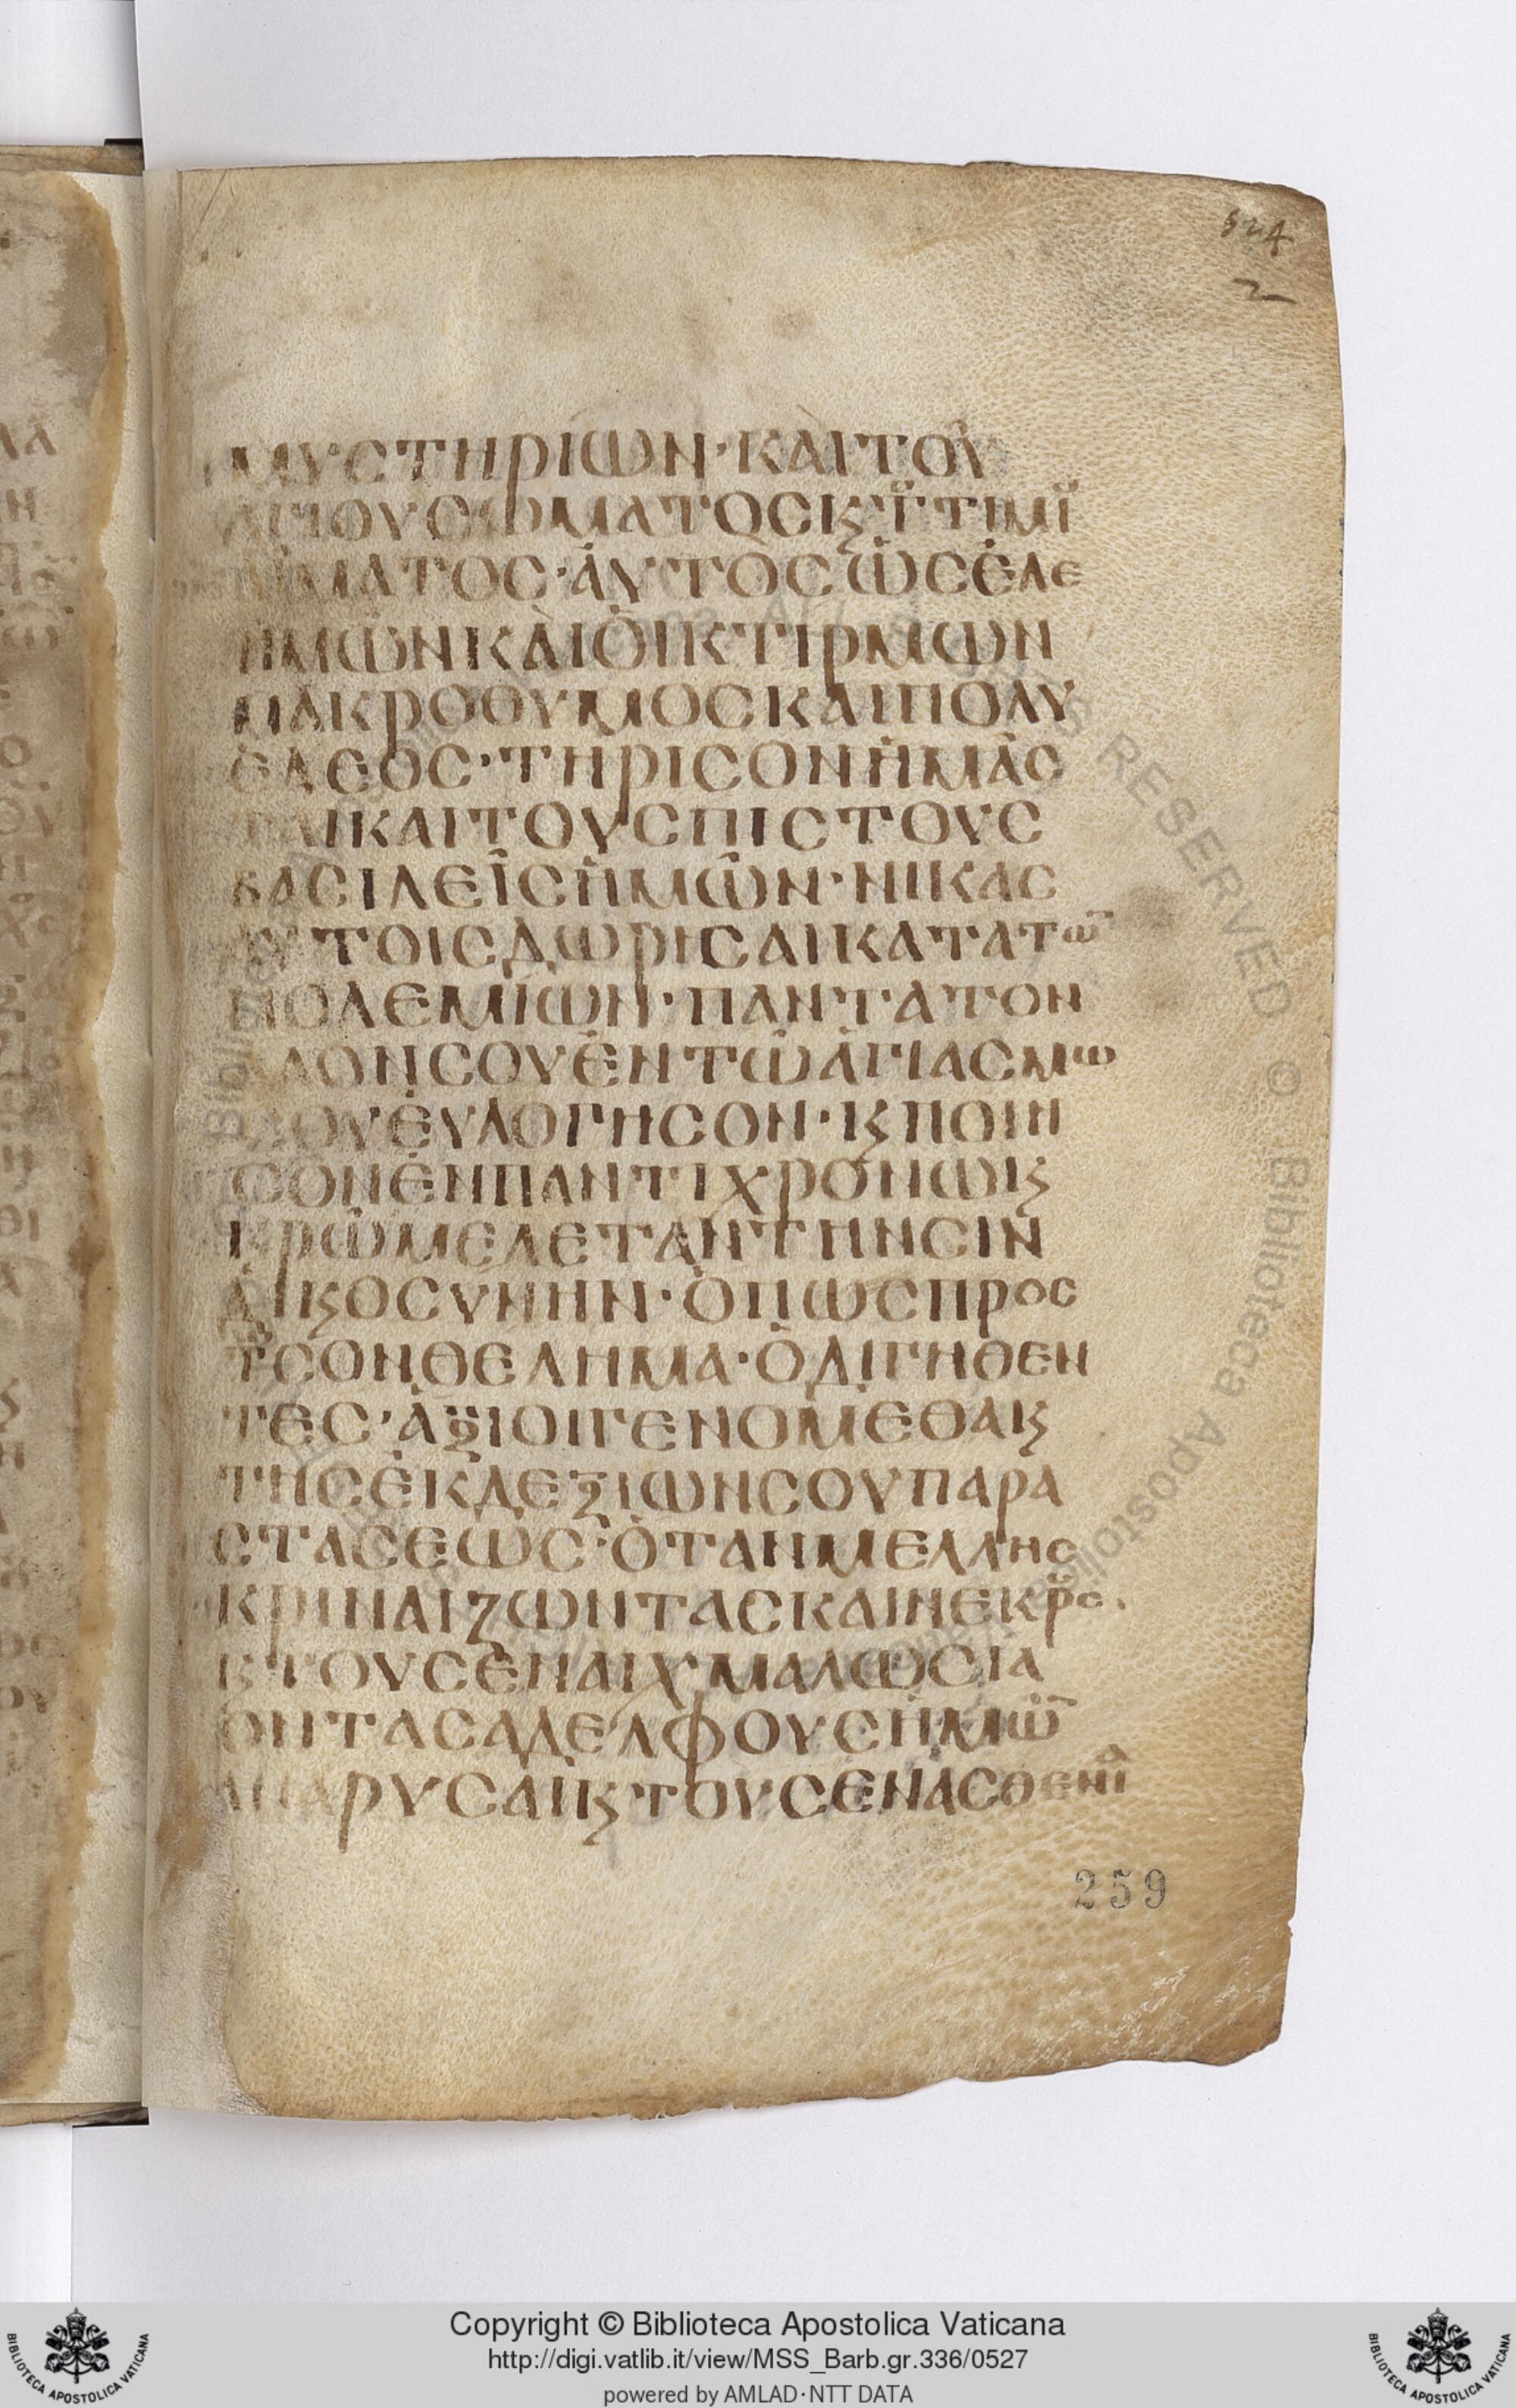 524
2
ΜΥСΤΗΡΙΩΝ·ΚΑΙΤΟΥ
ΑΓΙΟΥСΩΜΑΤΟСΚ̧ΤΤΙΜΙ
ΜΑΤΟС·ΑΥΤΟСΩСΕΛΕ
ΗΜΩΝΚΑΙΟΙΚΤΙΡΜΩΝ
ΜΑΚΡΟΘΥΜΟСΚΑΙΠΟΛΥ
ΕΛΕΟС·ΤΗΡΙСΟΝΗΜΑС
ΚΑΙΤΟΥСΠΙСΤΟΥС
ΒΑСΙΛΕΙСΗΜΩΝ·ΝΙΚΑС
ΑΥΤΟΙСΔΩΡΗСΑΙΚΑΤΑΤΩ̅
ΠΟΛΕΜΙΩΝ·ΠΑΝΤΑΤΟΝ
ΛΑΟΝСΟΥΕΝΤΩΑΓΙΑСΜΩ
СΟΥΕΥΛΟΓΗСΟΝ·Κ̧ΠΟΙΗ
СΟΝΕΝΠΑΝΤΙΧΡΟΝΩΚ̧
ΚΡΩΜΕΛΕΤΑΝΤΗΝСΙΝ
ΔΙΚ̧ΟСΥΝΗΝ·ΟΠΩСΠΡΟС
ΤСΟΝΘΕΛΗΜΑ·ΟΔΙΓΗΘΕΝ
ΤΕС·ΑΞΙΟΙΓΕΝΟΜΕΘΑΚ̧
ΤΗСΕΚΔΕΞΙΩΝСΟΥΠΑΡΑ
СΤΑСΕΩС·ΟΤΑΝΜΕΛΛΗС
ΚΡΙΝΑΙΖΩΝΤΑСΚΑΙΝΕΚΡȣС·
Κ̧ΤΟΥСΕΝΑΙΧΜΑΛΩСΙΑ
ΟΝΤΑСΑΔΕΛΦΟΥСΗΜΩ̅
ΑΝΑΡΥСΑΙΚ̧ΤΟΥСΕΝΑСΘΕΝΙ
259
Copyright © Biblioteca Apostolica Vaticana
http://digi.vatlib.it/view/MSS_Barb.gr.336/0527
powered by AMLAD·NTT DATA
BIBLIOTECA APOSTOLICA VATICANA
BIBLIOTECA APOSTOLICA VATICANA